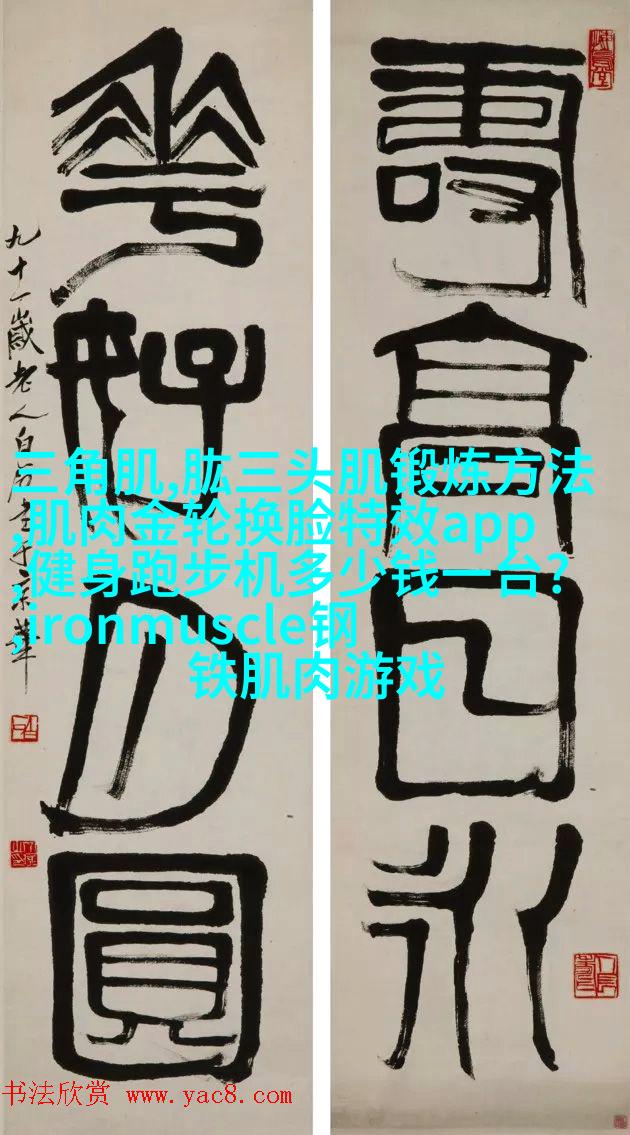 壽高日永
花好月圓
九十一歲老人白石于京華
三角肌,肱三头肌锻炼方法
,肌肉金轮换脸特效app
,健身跑步机多少钱一台?
,ironmuscle钢
铁肌肉游戏
书法欣赏 www.yac8.com